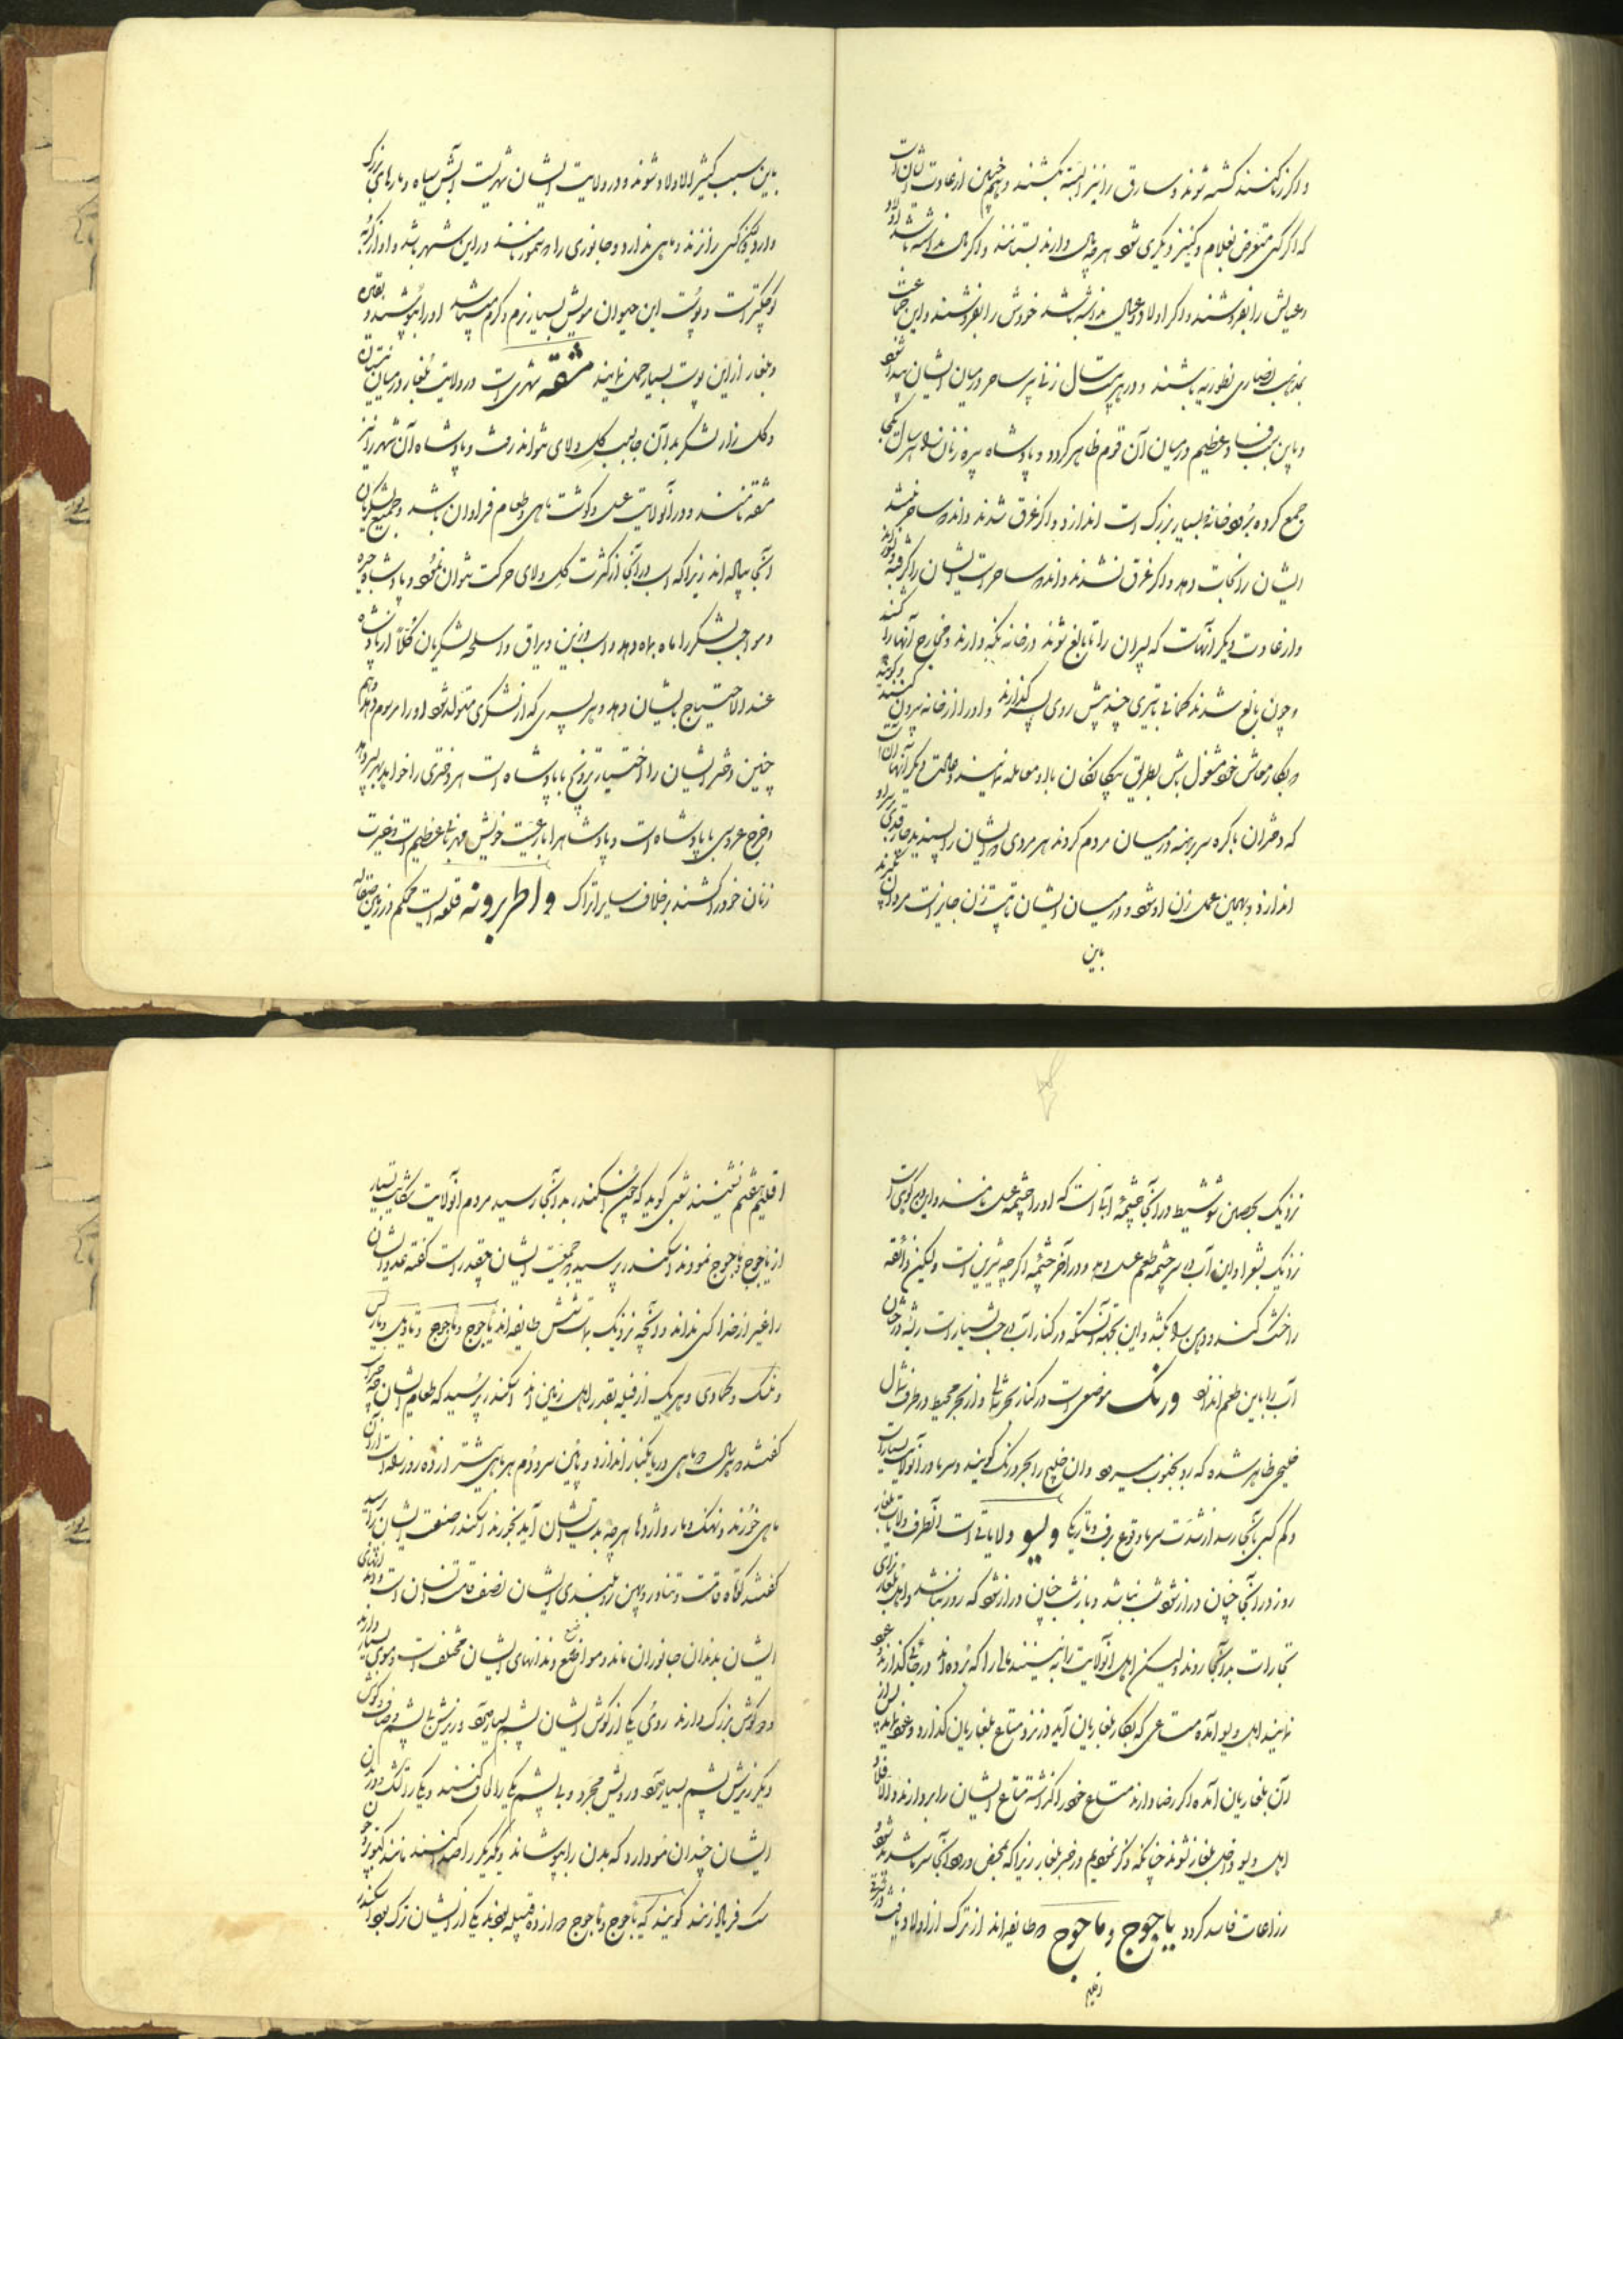 واکر زنا کنند کشته شوند و سارق را نیز البته بکشند و همچنین از عادت ایشان است
که اکر کسی متعرض بغلام و کنیز دیکری شود هر چه مال دارند بستانند و اکر مال نداشته باشد اولاد
و عیالش را بفروشند و اکر اولاد و عیال نداشته باشد خودش را بفروشند و این جماعت
بمذهب نصاری نطوریه باشند و در هر بیست سال زنی پیر ساحر در میان ایشان پیدا شود
و باین سبب فساد عظیم در میان آن قوم ظاهر کردد و پادشاه پیره زنان را هر سال یکجا
جمع کرده برودخانه بسیار بزرک است اندازد و اکر غرق شدند دانند ساحر نیستند
ایشان را نجات دهد و اکر غرق نشدند دانند ساحر است ایشان را کرفته
و از عادت دیکر آنهاست که پسران را تا بالغ شوند در خانه نکه دارند و مخارج آنها را کنند
و چون بالغ شدند کمانی با تیری چند پیش روی پسر کذارند و او را از خانه بیرون کنند
بکار معاش خود مشغول باش بطریق بیکانکان با او معامله نمایند و عادت دیکر آنها آن است
که دختران باکره سر برهنه در میان مردم کردند هر مردی که ایشان را پسندید چارقدی بر سر او
اندازد و بهمین عمل زن او شود و در میان ایشان تا بیست زن جایز است
باین
باین سبب کثیر الاولاد شوند و در ولایت ایشان شهریست آبش سیاه و مارهای بزرک
دارد ولیکن کسی را نزند و ماهی ندارد و جانوری را سمور نامند در این شهر باشد و او از کربه
کوچکتر است و پوست این حیوان مویش بسیار نرم و کرم میباشد او را بپوشند و
و بلغار از این پوست بسیار حمل نمایند مشقه شهریست در ولایت بلغار در میان نیستان
و کل زار لشکر بدآن جا بسبب کل و لای نتواند رفت و پادشاه آن شهر را نیز
مشقه نامند و در آنولایت عسل و کوشت ماهی و طعام فراوان باشد و جمیع لشکریان
آنجا پیاده اند زیرا که اسب در آنجا از کثرت کل و لای حرکت نتوان نمود و پادشاه جیره
و مواجب لشکر را ماه بماه دهد و اسب و زین و یراق و اسلحه لشکریان کلا از پادشاه
عند الاحتیاج بایشان دهد و هر پسری که از لشکری متولد شود او را مرسوم دهد
چنین دختر ایشان را اختیار تزویج با پادشاه است هر دختری را خواهد بهر پسر دهد
و خرج عروسی با پادشاه است و پادشاهرا با رعیت خویش مهربانی عظیم است و غیرت
زنان خود را کشند بر خلاف سایر اتراک واطربرونه قلعه ایست محکم در زمین صقالبه
نزدیک بحصن شوشیط در آنجا چشمهٔ آب است که او را چشمه عسل نامند و این در کوهی است
نزدیک بشعرا و این آب در سر چشمه طعم عسل دهد و در آخر چشمه اکر چه شیرین است ولیکن ذائقه
را خشک کند و دهن را بکشد و این بجهة آنستکه در کنار آب درخت بسیار است ریشه درختان
آب را باین طعم اندازد ورنک موضعی است در کنار بحر شمالی و از بحر محیط در طرف شمال
خلیجی ظاهر شده که رو بجنوب میرود و آن خلیج را بحر ورنک کویند و سرما در آنولایت بسیار است
و کم کسی بآنجا رسد از شدت سرما و وقوع برف و تاریکی ویسو ولایاتی است آنطرف ولایت بلغار
روز در آنجا چنان دراز شود شب نباشد و باز شب چنان دراز شود که روز نباشد و اهل بلغار برای
تجارات بدآنجا روند ولیکن اهل آنولایت را نه بینند مالی را که برده اند در جائی کذارند و عود
نمایند اهل ویسو آمده متاعی که بکار بلغاریان آید در نزد متاع بلغاریان کذارد و عود نماید پس از
آن بلغاریان آمده اکر رضا دارند متاع خود را کذاشته متاع ایشان را بردارند و الا فلا و
اهل ویسو داخل بلغار نشوند چنانکه ذکر نمودیم در خبر بلغار زیرا که بمحض ورود آنجا سرما شدید شود و
زراعات فاسد کردد یاجوج و ماجوج دو طایفه اند از ترک از اولاد یافث در شرقی
اقلیم
اقلیم هفتم نشینند شعبی کوید که چون اسکندر بدآنجا رسید مردم آنولایت شکایت بسیار
از یاجوج و ماجوج نمودند اسکندر پرسید جمعیت ایشان چقدر است کفتند عدد ایشان
را غیر از خدا کسی نداند و آنچه نزدیک باست شش طایفه اند یاجوج و ماجوج و تاویل و تاریس
و منسک و کماوی و هر یک از قبیله بقدر اهل زمین اند اسکندر پرسید که طعام ایشان چه چیز است
کفتند در هر سال دو ماهی دریا بکنار اندازد و ما بین سر و دم هر ماهی بیشتر از ده روز راه است از آن
ماهی خورند و نهنک و مار و اژدها هر چه بدست ایشان آید بخورند اسکندر صفت ایشان را پرسید
کفتند کوتاه قامت و تناور و پهن رو بلندی ایشان نصف قامت انسان است و دندانهای
ایشان بدندان جانوران ماند و مواضع دندانهای ایشان مختلف است و موی بسیار دارند
و دو کوش بزرک دارند روی یکی از کوش ایشان پشم بسیار دارد و زیرش بی پشم و صاف و کوش
دیکر زیرش پشم بسیار دارد و رویش مجرد و بی پشم یکی را لحاف کنند و یکی را تشک و در بدن
ایشان چندان مو دارد که بدن را بپوشاند و یکدیکر را صدا کنند مانند کبوتر و چون
سک فریاد زنند کویند که یاجوج و ماجوج دوازده قبیله بودند یکی از ایشان ترک بود اسکندر